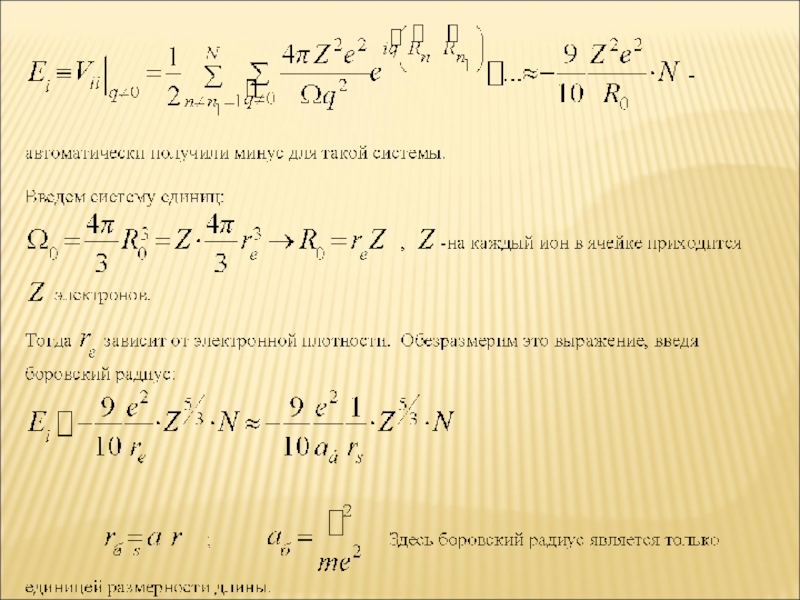 E_i ≡ V_ii|_{q≠0} = 1/2 Σ_{n≠n_1=1}^{N} Σ_{q≠0} 4πZ²e²/Ωq² e^{iq(R_n R_{n_1})} ▯...≈ −9/10 Z²e²/R_0 ·N -
автоматически получили минус для такой системы.
Введем систему единиц:
Ω_0 = 4π/3 R_0³ = Z· 4π/3 r_e³ → R_0 = r_e Z , Z -на каждый ион в ячейке приходится
Z электронов.
Тогда r_e зависит от электронной плотности. Обезразмерим это выражение, введя
боровский радиус:
E_i ▯ −9/10 e²/r_e ·Z^{5/3}·N ≈ −9/10 e²/a_á 1/r_s ·Z^{5/3}·N
r_б = a r_s ; a_б = ▯²/me² Здесь боровский радиус является только
единицей размерности длины.